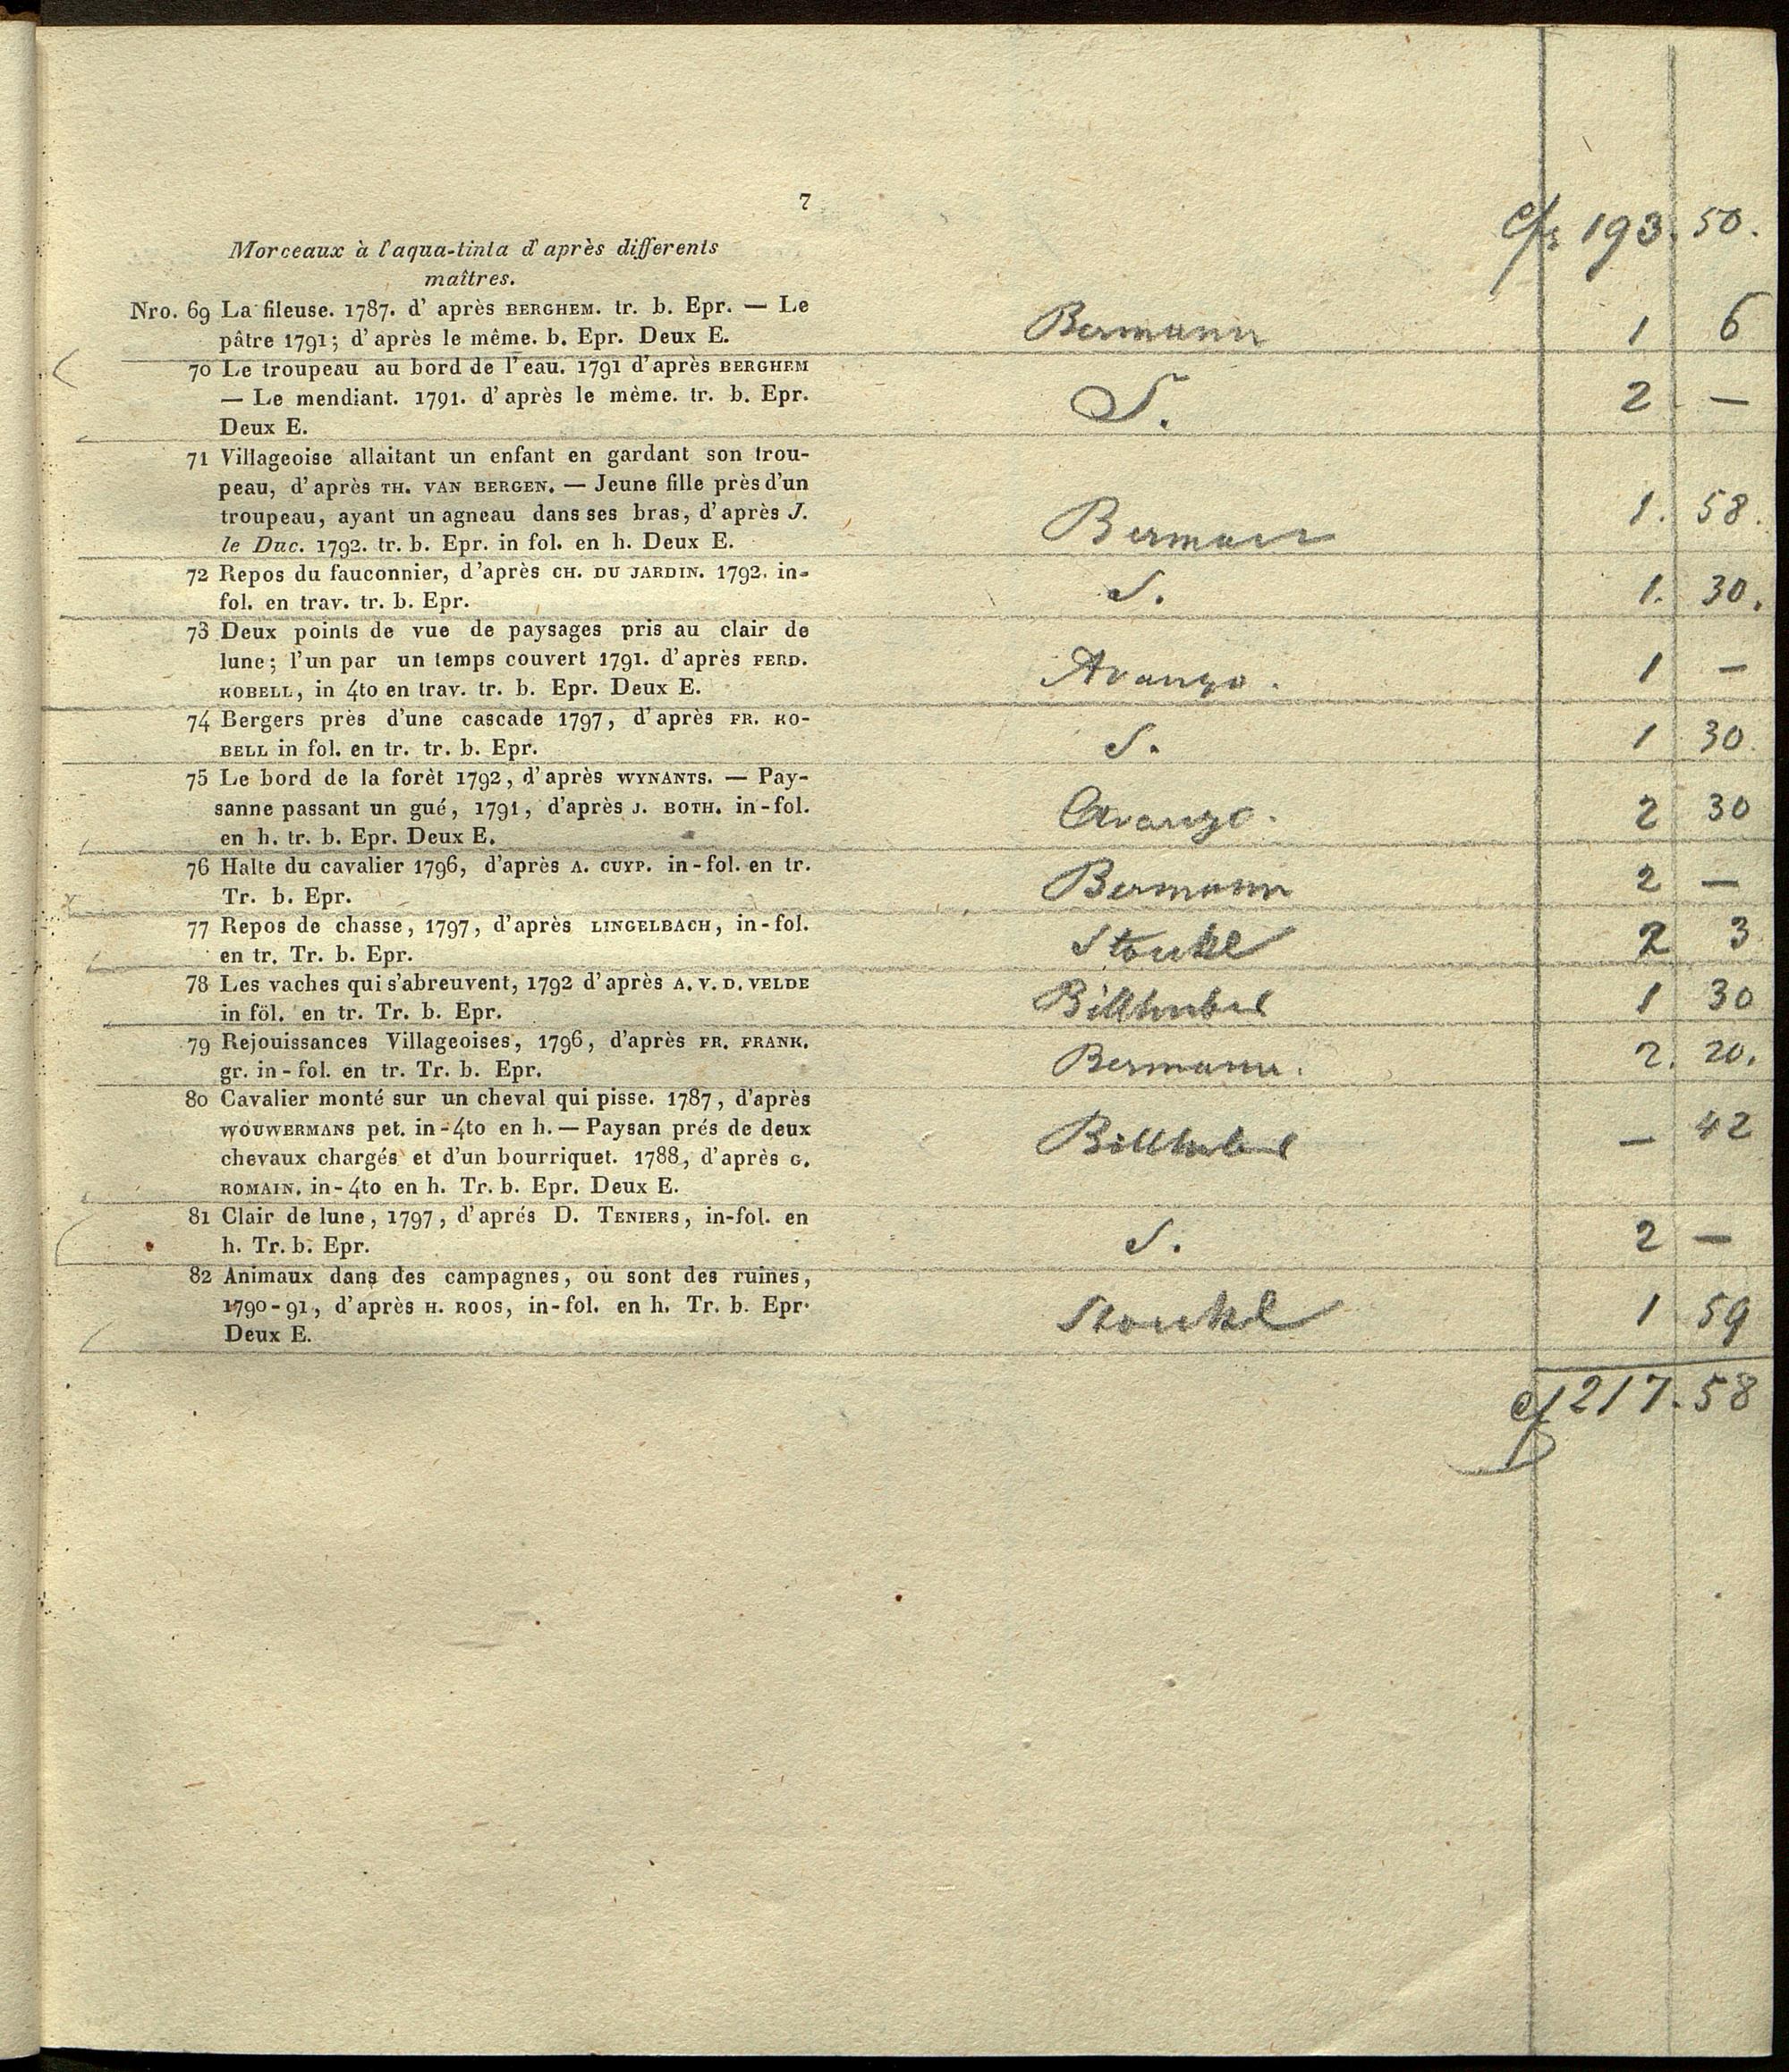 7
C/fr 193. 50.
Morceaux à l'aqua-tinta d'après differents
maîtres.
Nro. 69 La fileuse. 1787. d' après BERGHEM. tr. b. Epr. — Le
pâtre 1791; d'après le même. b. Epr. Deux E. Bermann 1 6
70 Le troupeau au bord de l'eau. 1791 d'après BERGHEM
— Le mendiant. 1791. d'après le mème. tr. b. Epr. S. 2 —
Deux E.
71 Villageoise allaitant un enfant en gardant son trou-
peau, d'après TH. VAN BERGEN. — Jeune fille près d'un
troupeau, ayant un agneau dans ses bras, d'après J.
le Duc. 1792. tr. b. Epr. in fol. en h. Deux E. Bermann 1. 58.
72 Repos du fauconnier, d'après CH. DU JARDIN. 1792. in-
fol. en trav. tr. b. Epr. S. 1. 30.
73 Deux points de vue de paysages pris au clair de
lune; l'un par un temps couvert 1791. d'après FERD.
KOBELL, in 4to en trav. tr. b. Epr. Deux E. Avanzo. 1 —
74 Bergers près d'une cascade 1797, d'après FR. KO-
BELL in fol. en tr. tr. b. Epr. S. 1 30
75 Le bord de la forèt 1792, d'après WYNANTS. — Pay-
sanne passant un gué, 1791, d'après J. BOTH. in-fol. Avanzo. 2 30
en h. tr. b. Epr. Deux E.
76 Halte du cavalier 1796, d'après A. CUYP. in-fol. en tr.
Tr. b. Epr. Bermann 2 —
77 Repos de chasse, 1797, d'après LINGELBACH, in-fol.
en tr. Tr. b. Epr. Stoukl 2 3
78 Les vaches qui s'abreuvent, 1792 d'après A. V. D. VELDE
in föl. en tr. Tr. b. Epr. Billhuber 1 30
79 Rejouissances Villageoises, 1796, d'après FR. FRANK.
gr. in-fol. en tr. Tr. b. Epr. Bermann. 2. 20.
80 Cavalier monté sur un cheval qui pisse. 1787, d'après
WOUWERMANS pet. in-4to en h. — Paysan prés de deux
chevaux chargés et d'un bourriquet. 1788, d'après G. Billhuber — 42
ROMAIN. in-4to en h. Tr. b. Epr. Deux E.
81 Clair de lune, 1797, d'aprés D. TENIERS, in-fol. en
h. Tr. b. Epr. S. 2 —
82 Animaux dans des campagnes, où sont des ruines,
1790-91, d'après H. ROOS, in-fol. en h. Tr. b. Epr. Stoukl 1 59
Deux E.
217. 58